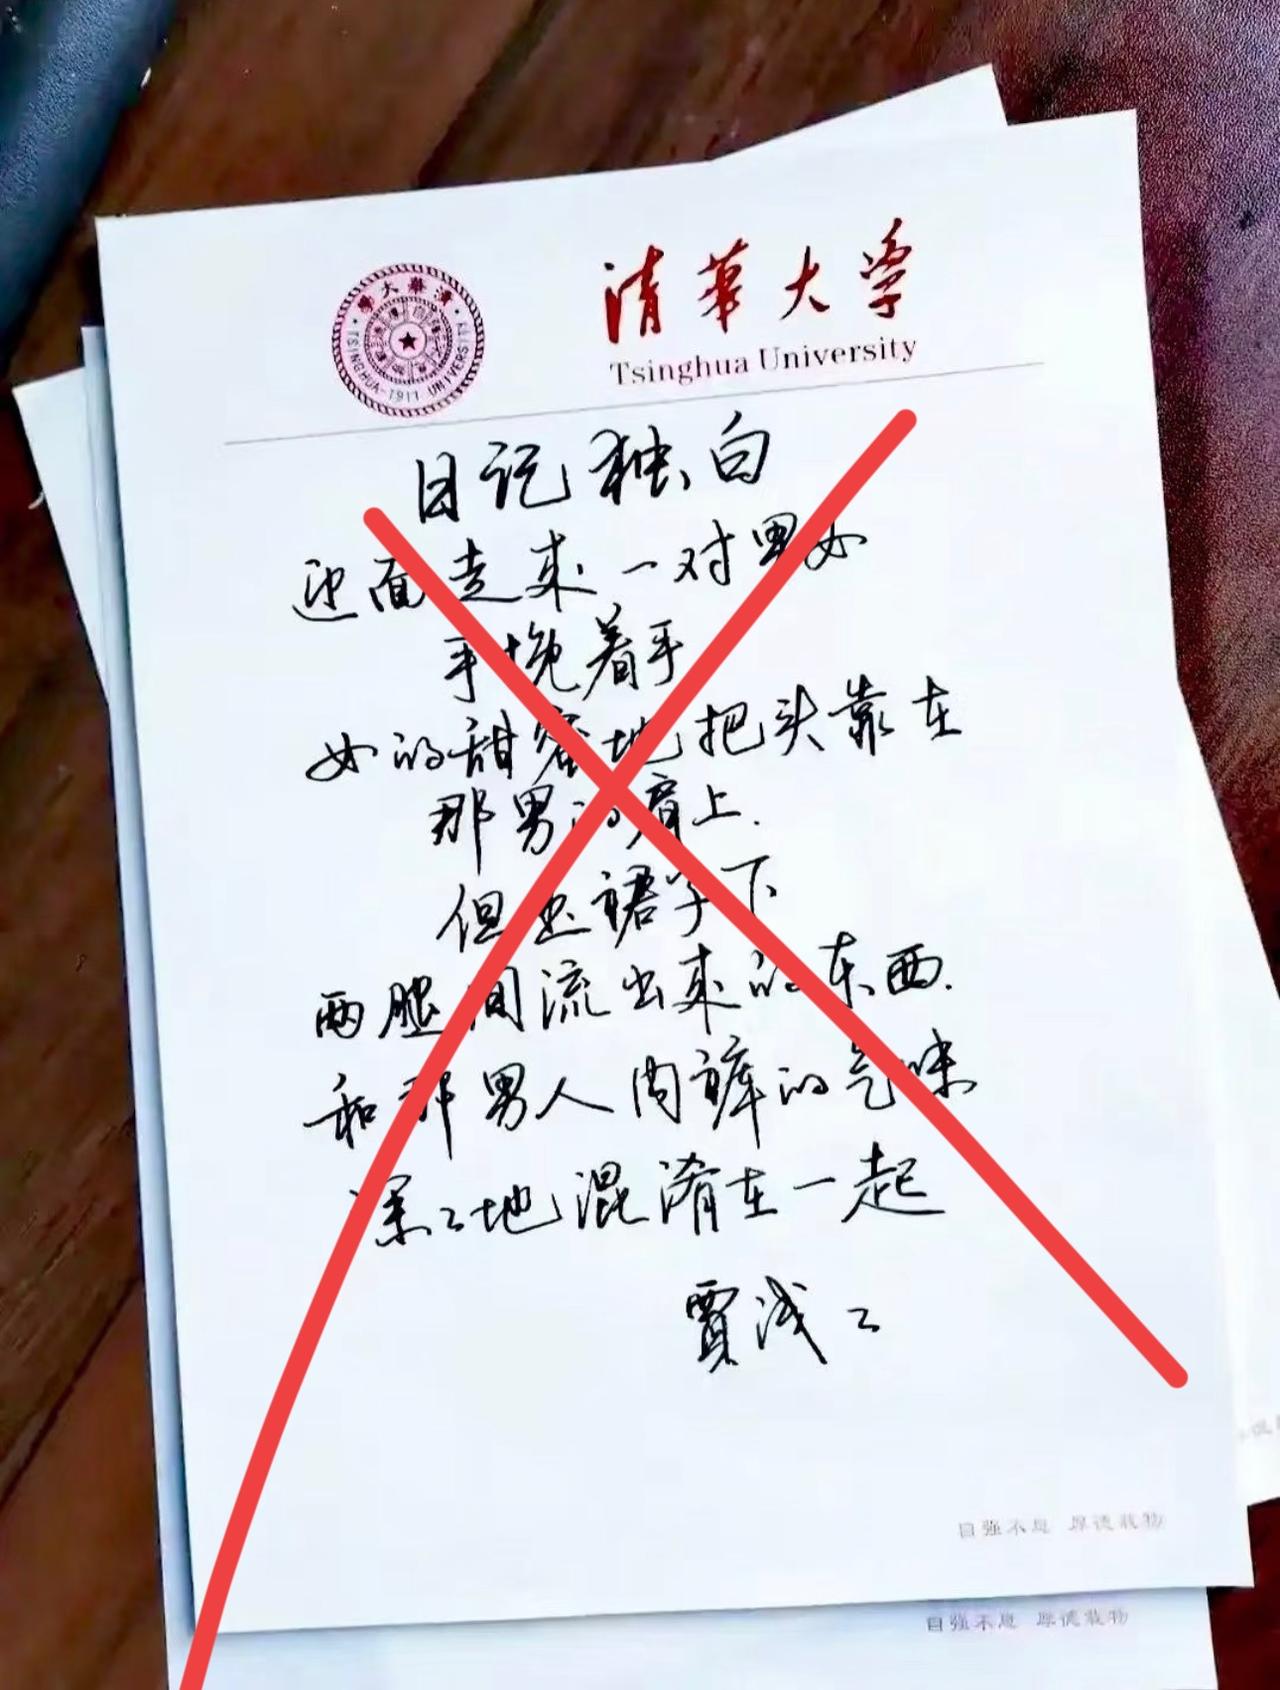 清華大学
Tsinghua University
TSINGHUA-1911 UNIVERSITY
日记独白
迎面走来一对男女
手挽着手
女的甜蜜地把头靠在
那男的肩上.
但裙子下
两腿间流出来的东西.
和那男人内裤的气味
深々地混淆在一起
賈浅々
自强不息 厚德载物
自强不息 厚德载物